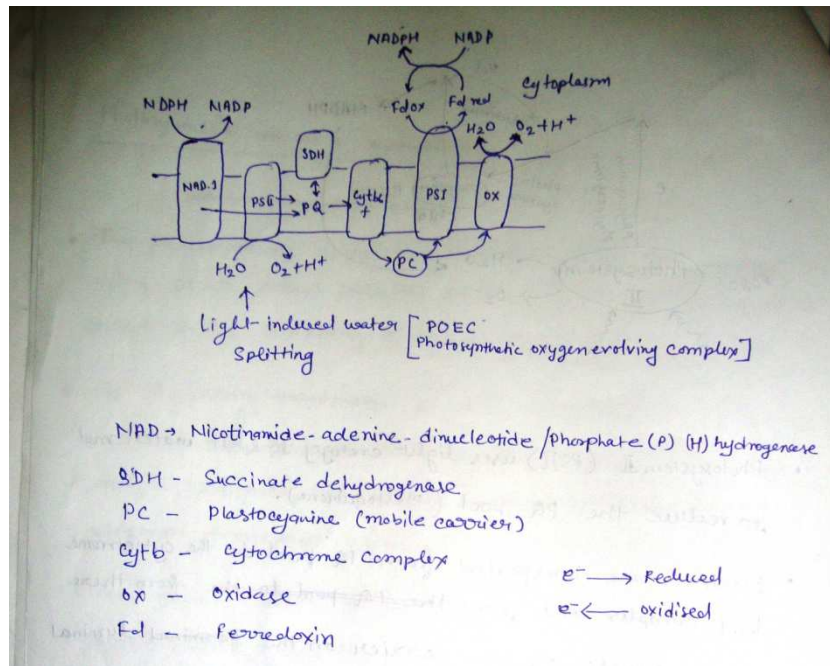 NADPH NADP
Cytoplasm
NDPH NADP
Fdox Fd red
H2O O2+H+
SDH
NAD.1
PSII PQ Cytb6f PSI OX
PC
H2O O2+H+
Light-induced water [POEC
Splitting Photosynthetic oxygen evolving complex]
NAD → Nicotinamide-adenine-dinucleotide/Phosphate (P) (H) hydrogenase
SDH - Succinate dehydrogenase
PC - Plastocyanine (mobile carrier)
Cytb - Cytochrome complex
OX - Oxidase
Fd - Ferredoxin
e- → Reduced
e- ← oxidised